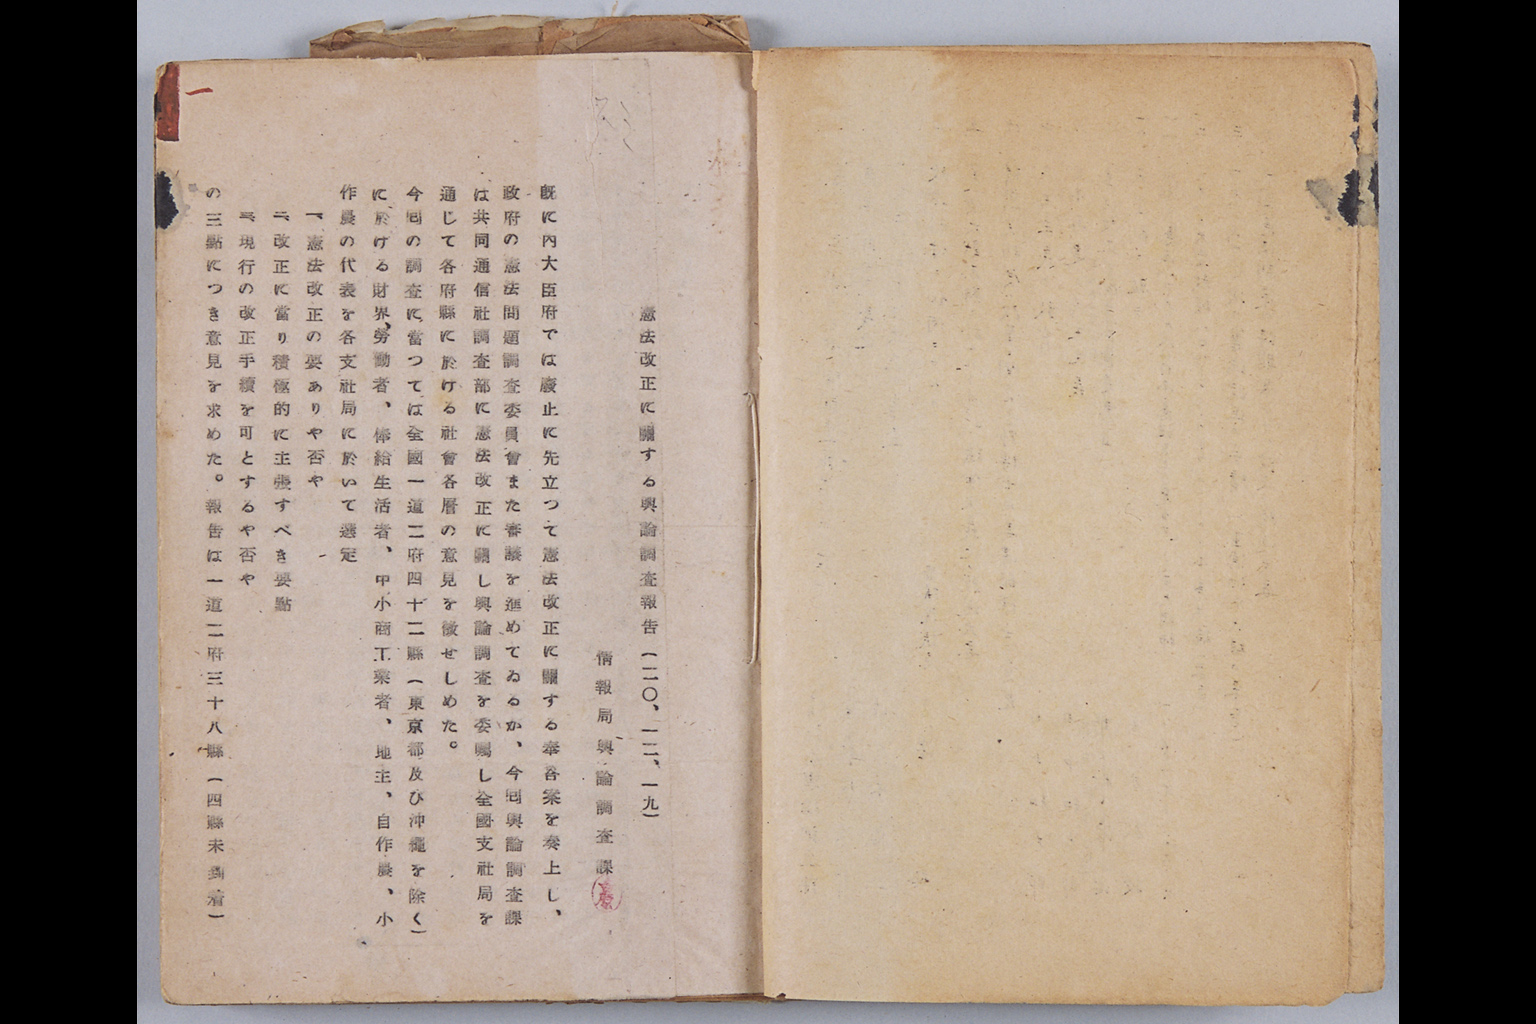 憲法改正に關する輿論調査報告(二〇、一二、一九)
情報局輿論調査課
既に內大臣府では廢止に先立つて憲法改正に關する奉答案を奏上し、
政府の憲法問題調査委員會また審議を進めてゐるが、今囘輿論調査課
は共同通信社調査部に憲法改正に關し輿論調査を委囑し全國支社局を
通じて各府縣に於ける社會各層の意見を徵せしめた。
今囘の調査に當つては全國一道二府四十二縣(東京都及び沖繩を除く)
に於ける財界、勞働者、俸給生活者、中小商工業者、地主、自作農、小
作農の代表を各支社局に於いて選定
一、憲法改正の要ありや否や
二、改正に當り積極的に主張すべき要點
三、現行の改正手續を可とするや否や
の三點につき意見を求めた。報告は一道二府三十八縣(四縣未到着)
一